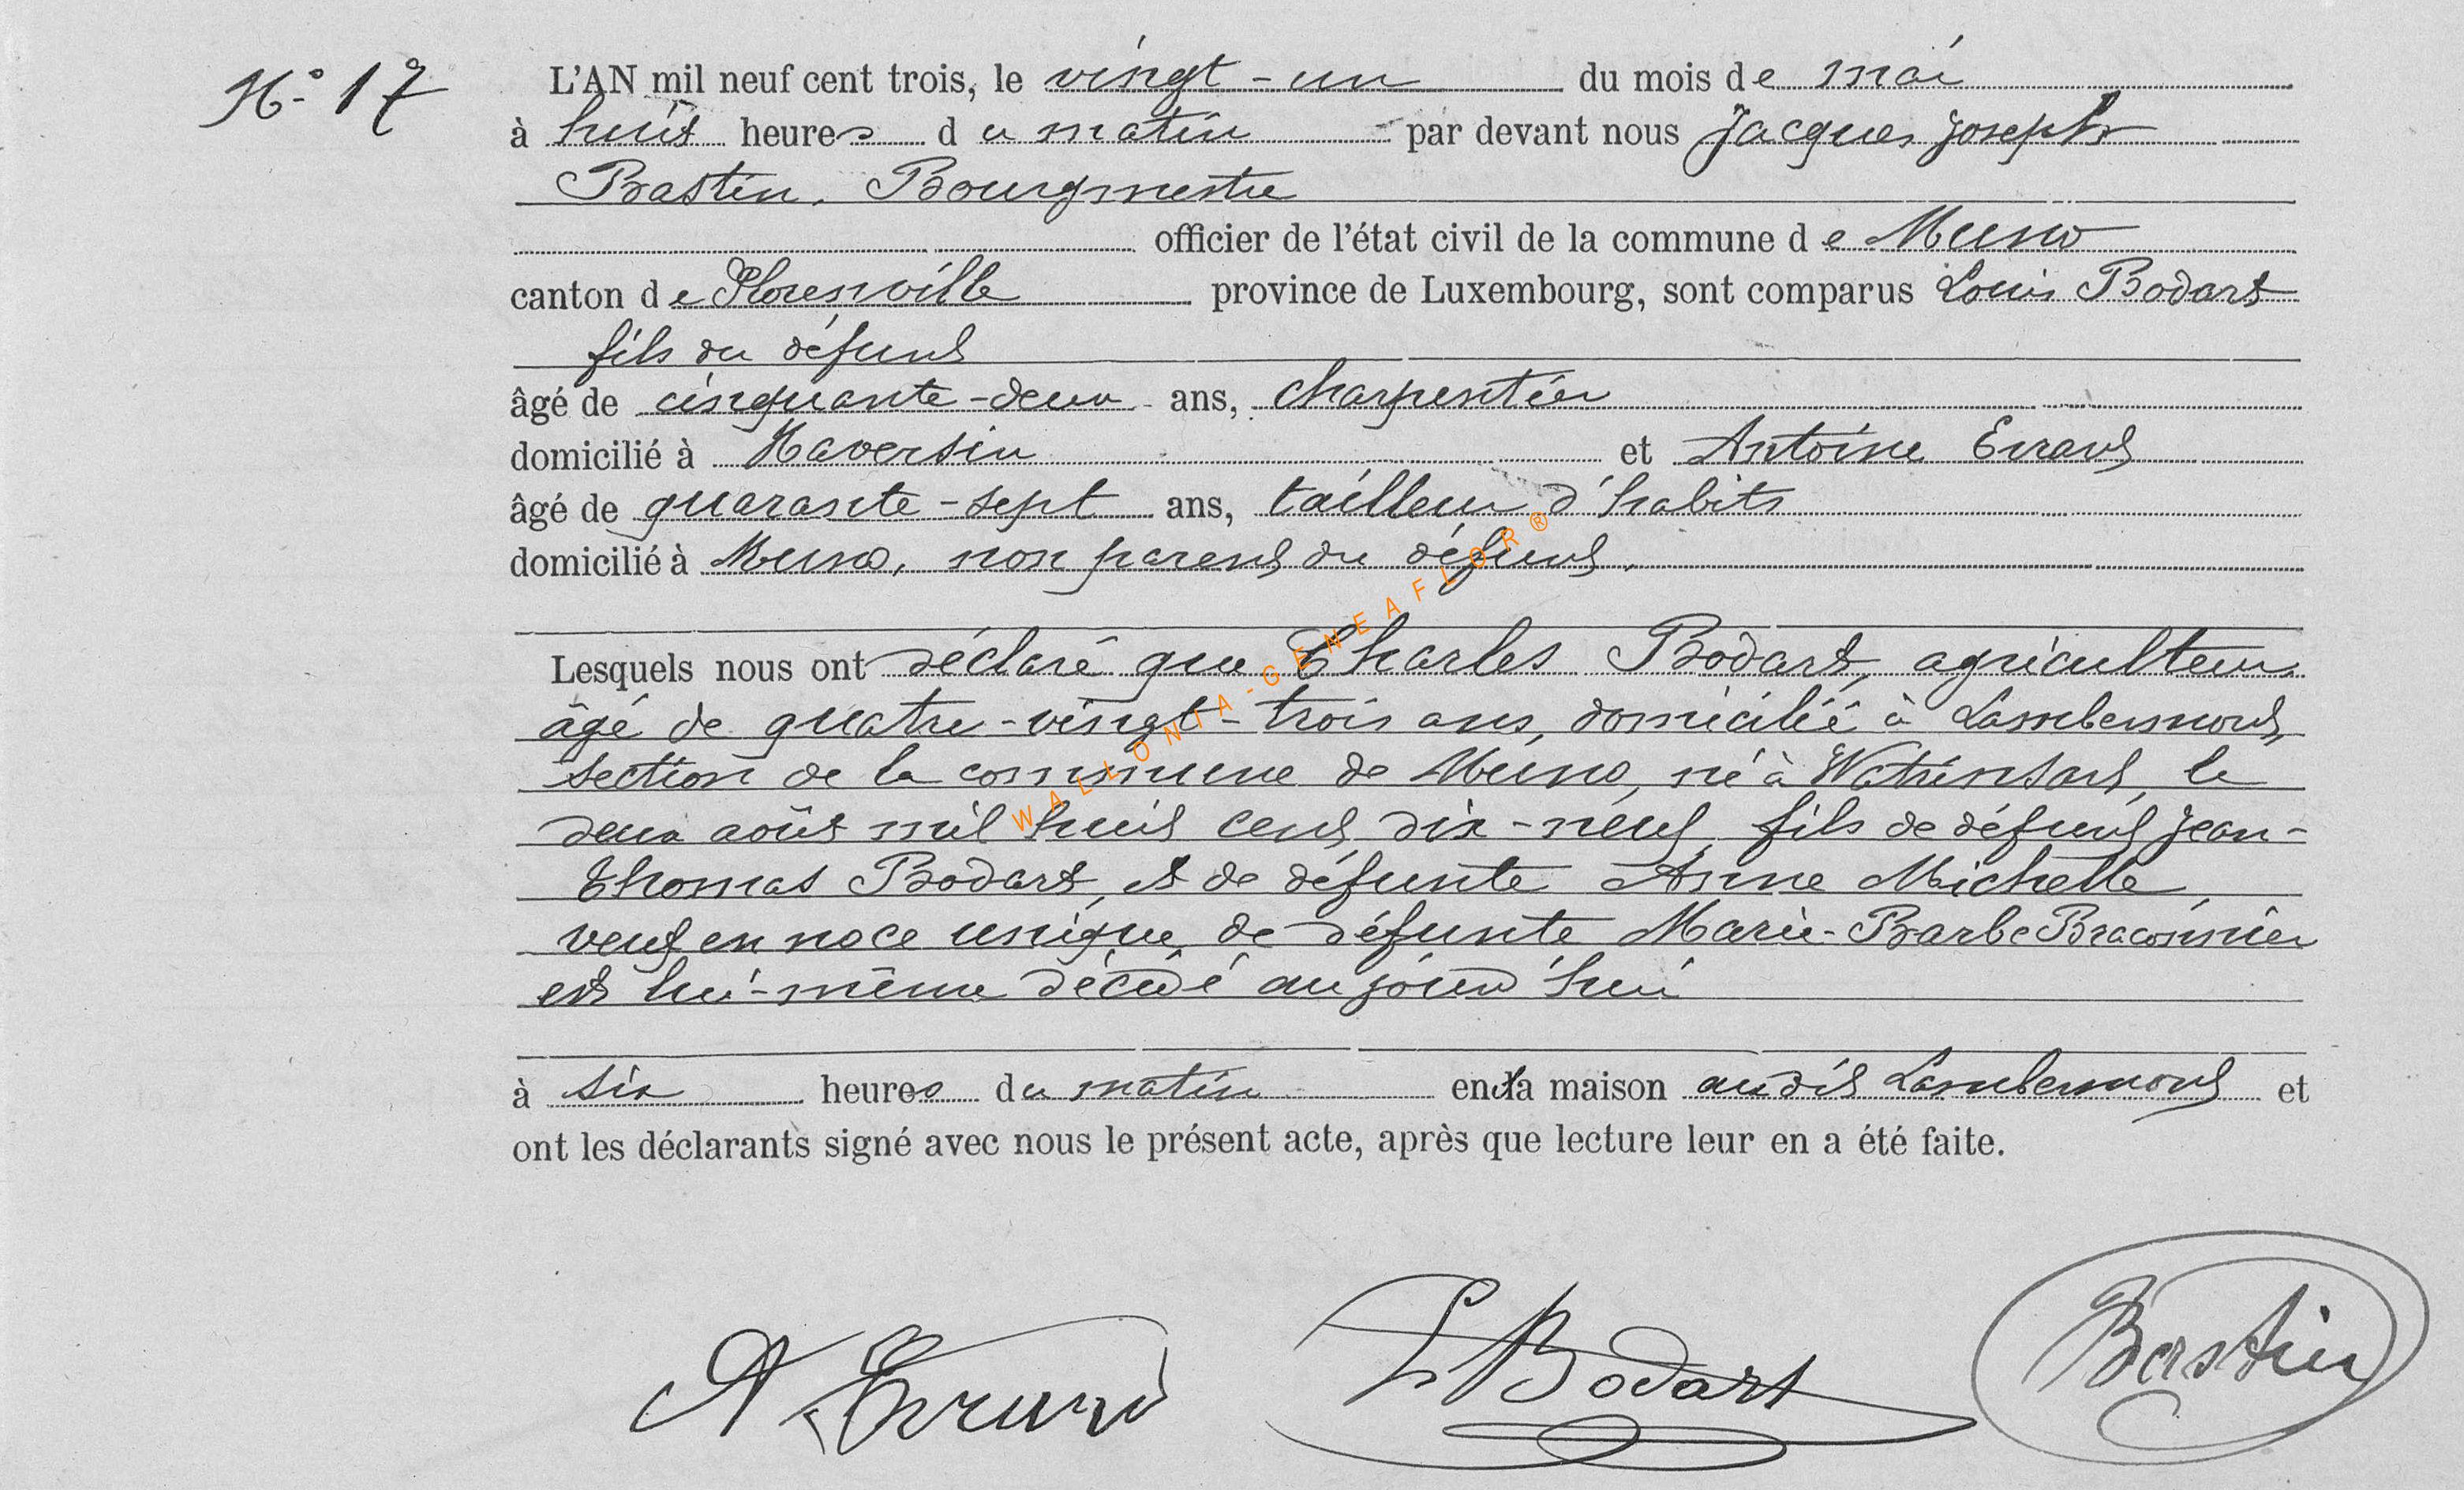 N° 17
L'AN mil neuf cent trois, le vingt-un du mois de mai
à huit heures du matin par devant nous Jacques Joseph
Bastin, Bourgmestre
officier de l'état civil de la commune de Muno
canton de Florenville province de Luxembourg, sont comparus Louis Bodart
fils du défunt
âgé de cinquante-deux ans, charpentier
domicilié à Haversin et Antoine
âgé de quarante-sept ans, tailleur d'habits
domicilié à Muno, non parent du défunt.
Lesquels nous ont déclaré que Charles Bodart, agriculteur,
âgé de quatre-vingt-trois ans, domicilié à Lambermont,
section de la commune de Muno, né à Watrinsart, le
deux août mil huit cent dix-neuf, fils de défunt Jean-
Thomas Bodart, et de défunte Anne Michelle,
veuf en noce unique de défunte Marie-Barbe Braconnier
est lui-même décédé aujourd'hui
à six heures du matin en la maison audit Lambermont et
ont les déclarants signé avec nous le présent acte, après que lecture leur en a été faite.
A L Bodart Bastin
WALLONIA-GENEAFLOR®